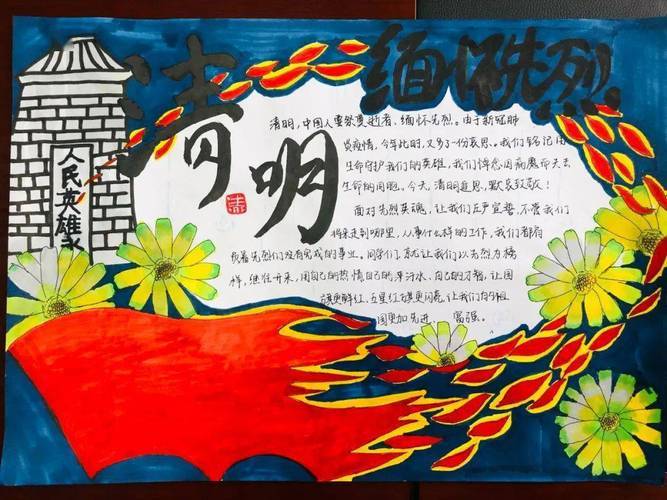 缅怀先烈
清明
人民英雄永
清明,中国人要祭奠逝者、缅怀先烈。由于新冠肺
炎疫情,今年此时,又多了一份哀思。我们铭记用
生命守护我们的英雄,我们悼念因病魔而失去
生命的同胞。今天,清明追思,默哀致敬!
面对先烈英魂,让我们庄严宣誓,不管我们
将来走到哪里,从事什么样的工作,我们都有
先烈们没有完成的事业。同学们,就让我们以先烈为榜
样,继往开来,用自己的热情自己的汗水,自己的才智,让国
旗更鲜红,五星红旗更闪亮,让我们的祖
国更加先进、富强。